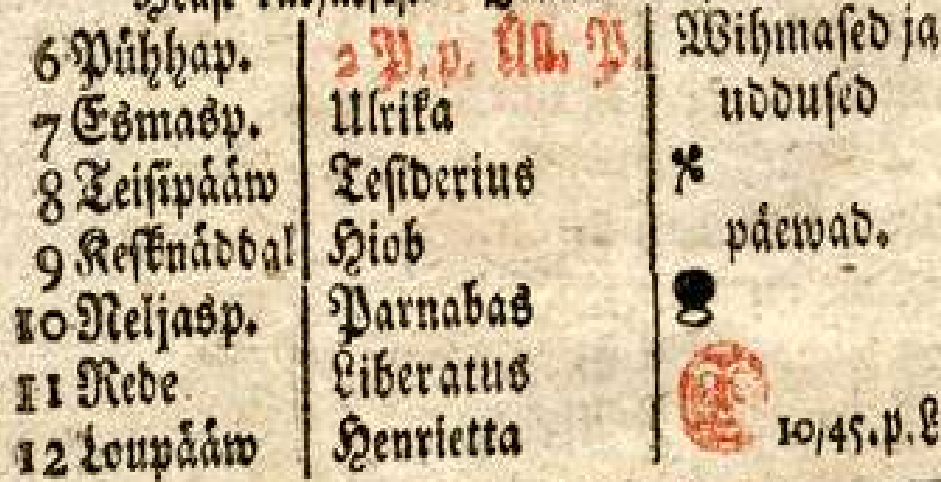 6 Pühhap. 2 P. p. Ül. P. Wihmased ja
7 Esmasp. Ulrika uddused
8 Teisipääw Tesiderius
9 Kesknäddal Hiob päewad.
10 Neljasp. Parnabas
11 Rede Liberatus
12 Loupääw Henrietta 10,45. p. L